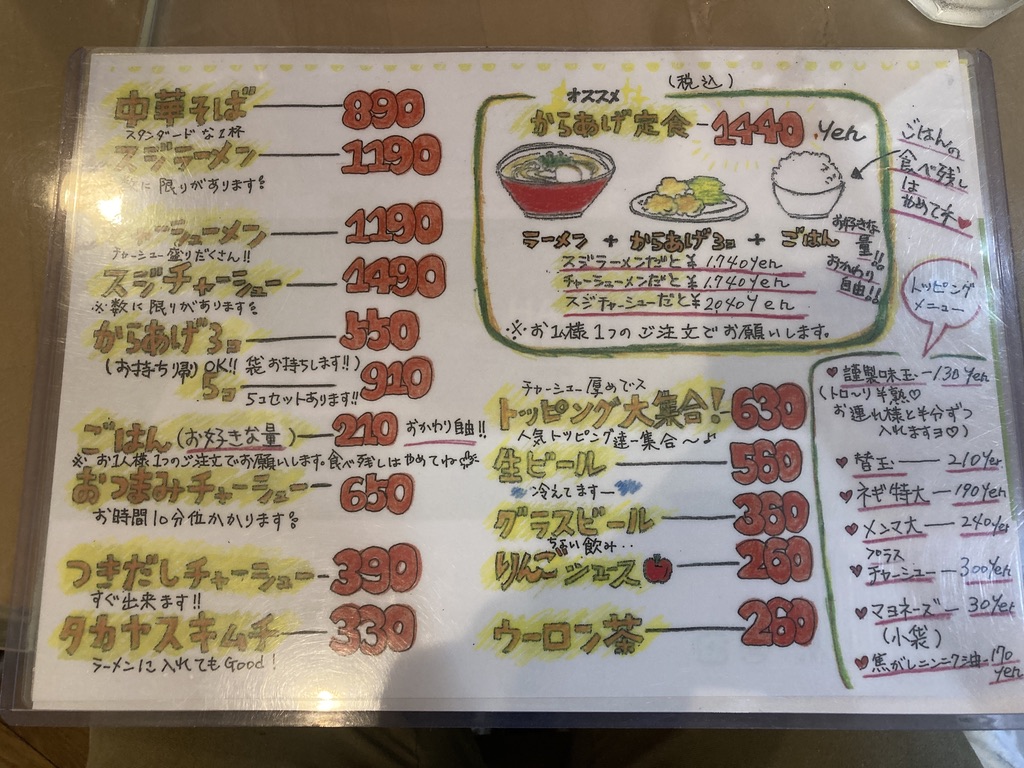 中華そば 890
スタンダードな1杯
スジラーメン 1190
数に限りがあります
チャーシューメン 1190
チャーシュー盛りだくさん!!
スジチャーシュー 1490
※数に限りがあります
からあげ3コ 550
(お持ち帰りOK!! 袋お持ちします!!)
5コ 910
5コセットあります!!
ごはん(お好きな量) 210 おかわり自由!!
※お1人様1つのご注文でお願いします。食べ残しはやめてね
おつまみチャーシュー 650
お時間10分位かかります
つきだしチャーシュー 390
すぐ出来ます!!
タカヤスキムチ 330
ラーメンに入れてもGood!
(税込)
オススメ
からあげ定食 1440 yen
ラーメン + からあげ3コ + ごはん
スジラーメンだと¥1,740yen
チャーシューメンだと¥1,740yen
スジチャーシューだと¥2,040yen
※お1人様1つのご注文でお願いします。
お好きな
量!!
おかわり
自由!!
ごはんの
食べ残し
は
やめてネ♥
チャーシュー厚めでス
トッピング大集合! 630
人気トッピング達 集合〜♪
生ビール 560
冷えてますー
グラスビール 360
ちょい飲み…
りんごジュース 260
ウーロン茶 260
トッピング
メニュー
♥謹製味玉ー130yen
(トロ〜リ半熟♡
お連れ様と半分ずつ
入れますヨ♡)
♥替玉ー210yen
♥ネギ特大ー190yen
♥メンマ大ー240yen
プラス
♥チャーシューー300yen
♥マヨネーズー30yen
(小袋)
♥焦がしニンニク油ー170
yen